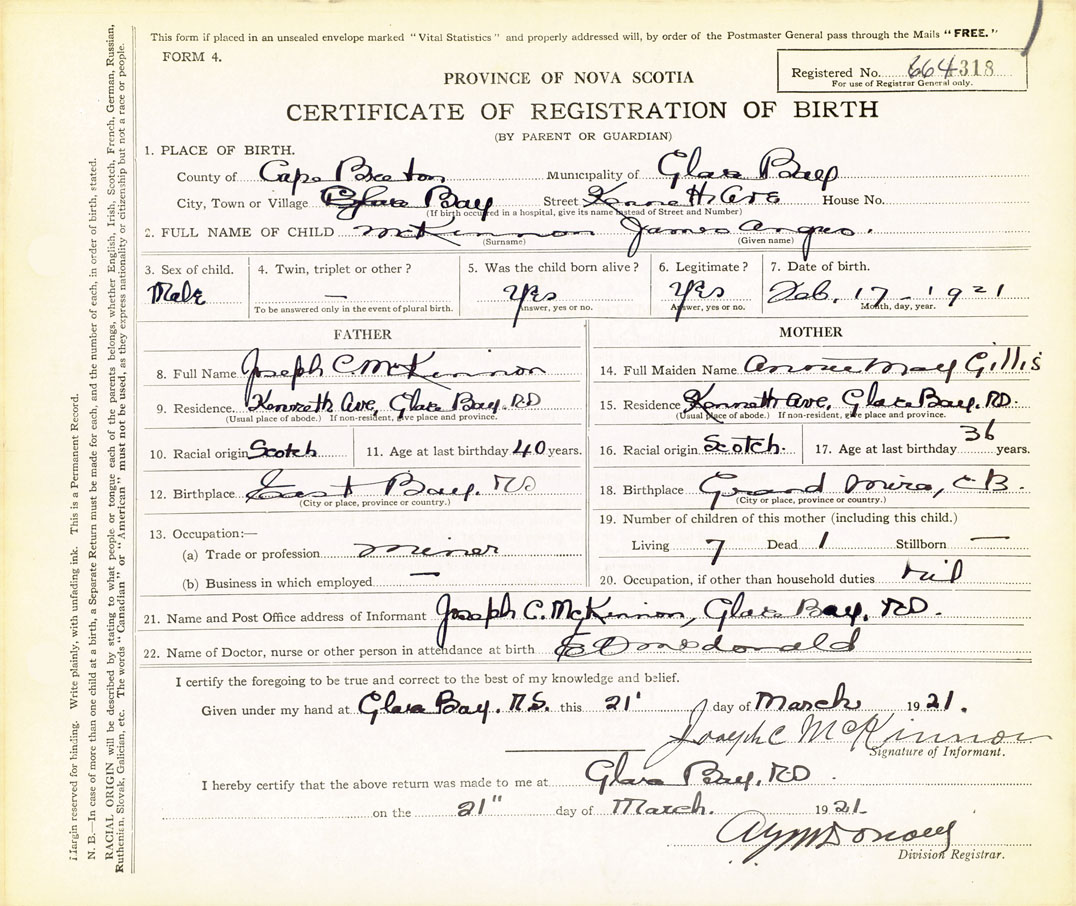 This form if placed in an unsealed envelope marked "Vital Statistics" and properly addressed will, by order of the Postmaster General pass through the Mails "FREE."
FORM 4.
Registered No. 664318
For use of Registrar General only.
PROVINCE OF NOVA SCOTIA
CERTIFICATE OF REGISTRATION OF BIRTH
(BY PARENT OR GUARDIAN)
1. PLACE OF BIRTH.
County of Cape Breton Municipality of Glace Bay
City, Town or Village Glace Bay Street Kenneth Ave House No.
(If birth occured in a hospital, give its name instead of Street and Number)
2. FULL NAME OF CHILD McKinnon James Angus.
(Surname) (Given name)
3. Sex of child. 4. Twin, triplet or other? 5. Was the child born alive? 6. Legitimate? 7. Date of birth.
Male — Yes Yes Feb. 17 - 1921
To be answered only in the event of plural birth. Answer, yes or no. Answer, yes or no. Month, day, year.
FATHER
8. Full Name Joseph C. McKinnon
9. Residence Kenneth Ave, Glace Bay.
(Usual place of abode.) If non-resident, give place and province.
10. Racial origin Scotch 11. Age at last birthday 40 years.
12. Birthplace East Bay.
(City or place, province or country.)
13. Occupation:—
(a) Trade or profession miner
(b) Business in which employed —
MOTHER
14. Full Maiden Name May Gillis
15. Residence Kenneth Ave, Glace Bay.
(Usual place of abode.) If non-resident, give place and province.
16. Racial origin Scotch. 17. Age at last birthday 36 years.
18. Birthplace Grand Mira, C B.
(City or place, province or country.)
19. Number of children of this mother (including this child.)
Living 7 Dead 1 Stillborn —
20. Occupation, if other than household duties nil
21. Name and Post Office address of Informant Joseph C. McKinnon, Glace Bay,
22. Name of Doctor, nurse or other person in attendance at birth McDonald
I certify the foregoing to be true and correct to the best of my knowledge and belief.
Given under my hand at Glace Bay. N.S. this 21" day of March 1921.
Joseph C McKinnon
Signature of Informant.
I hereby certify that the above return was made to me at Glace Bay,
on the 21" day of March. 1921
Division Registrar.
Margin reserved for binding. Write plainly, with unfading ink. This is a Permanent Record.
N. B.—In case of more than one child at a birth, a Separate Return must be made for each, and the number of each, in order of birth, stated.
RACIAL ORIGIN will be described by stating to what people or tongue each of the parents belongs, whether English, Irish, Scotch, French, German, Russian,
Ruthenian, Slovak, Galician, etc. The words "Canadian" or "American" must not be used, as they express nationality or citizenship but not a race or people.